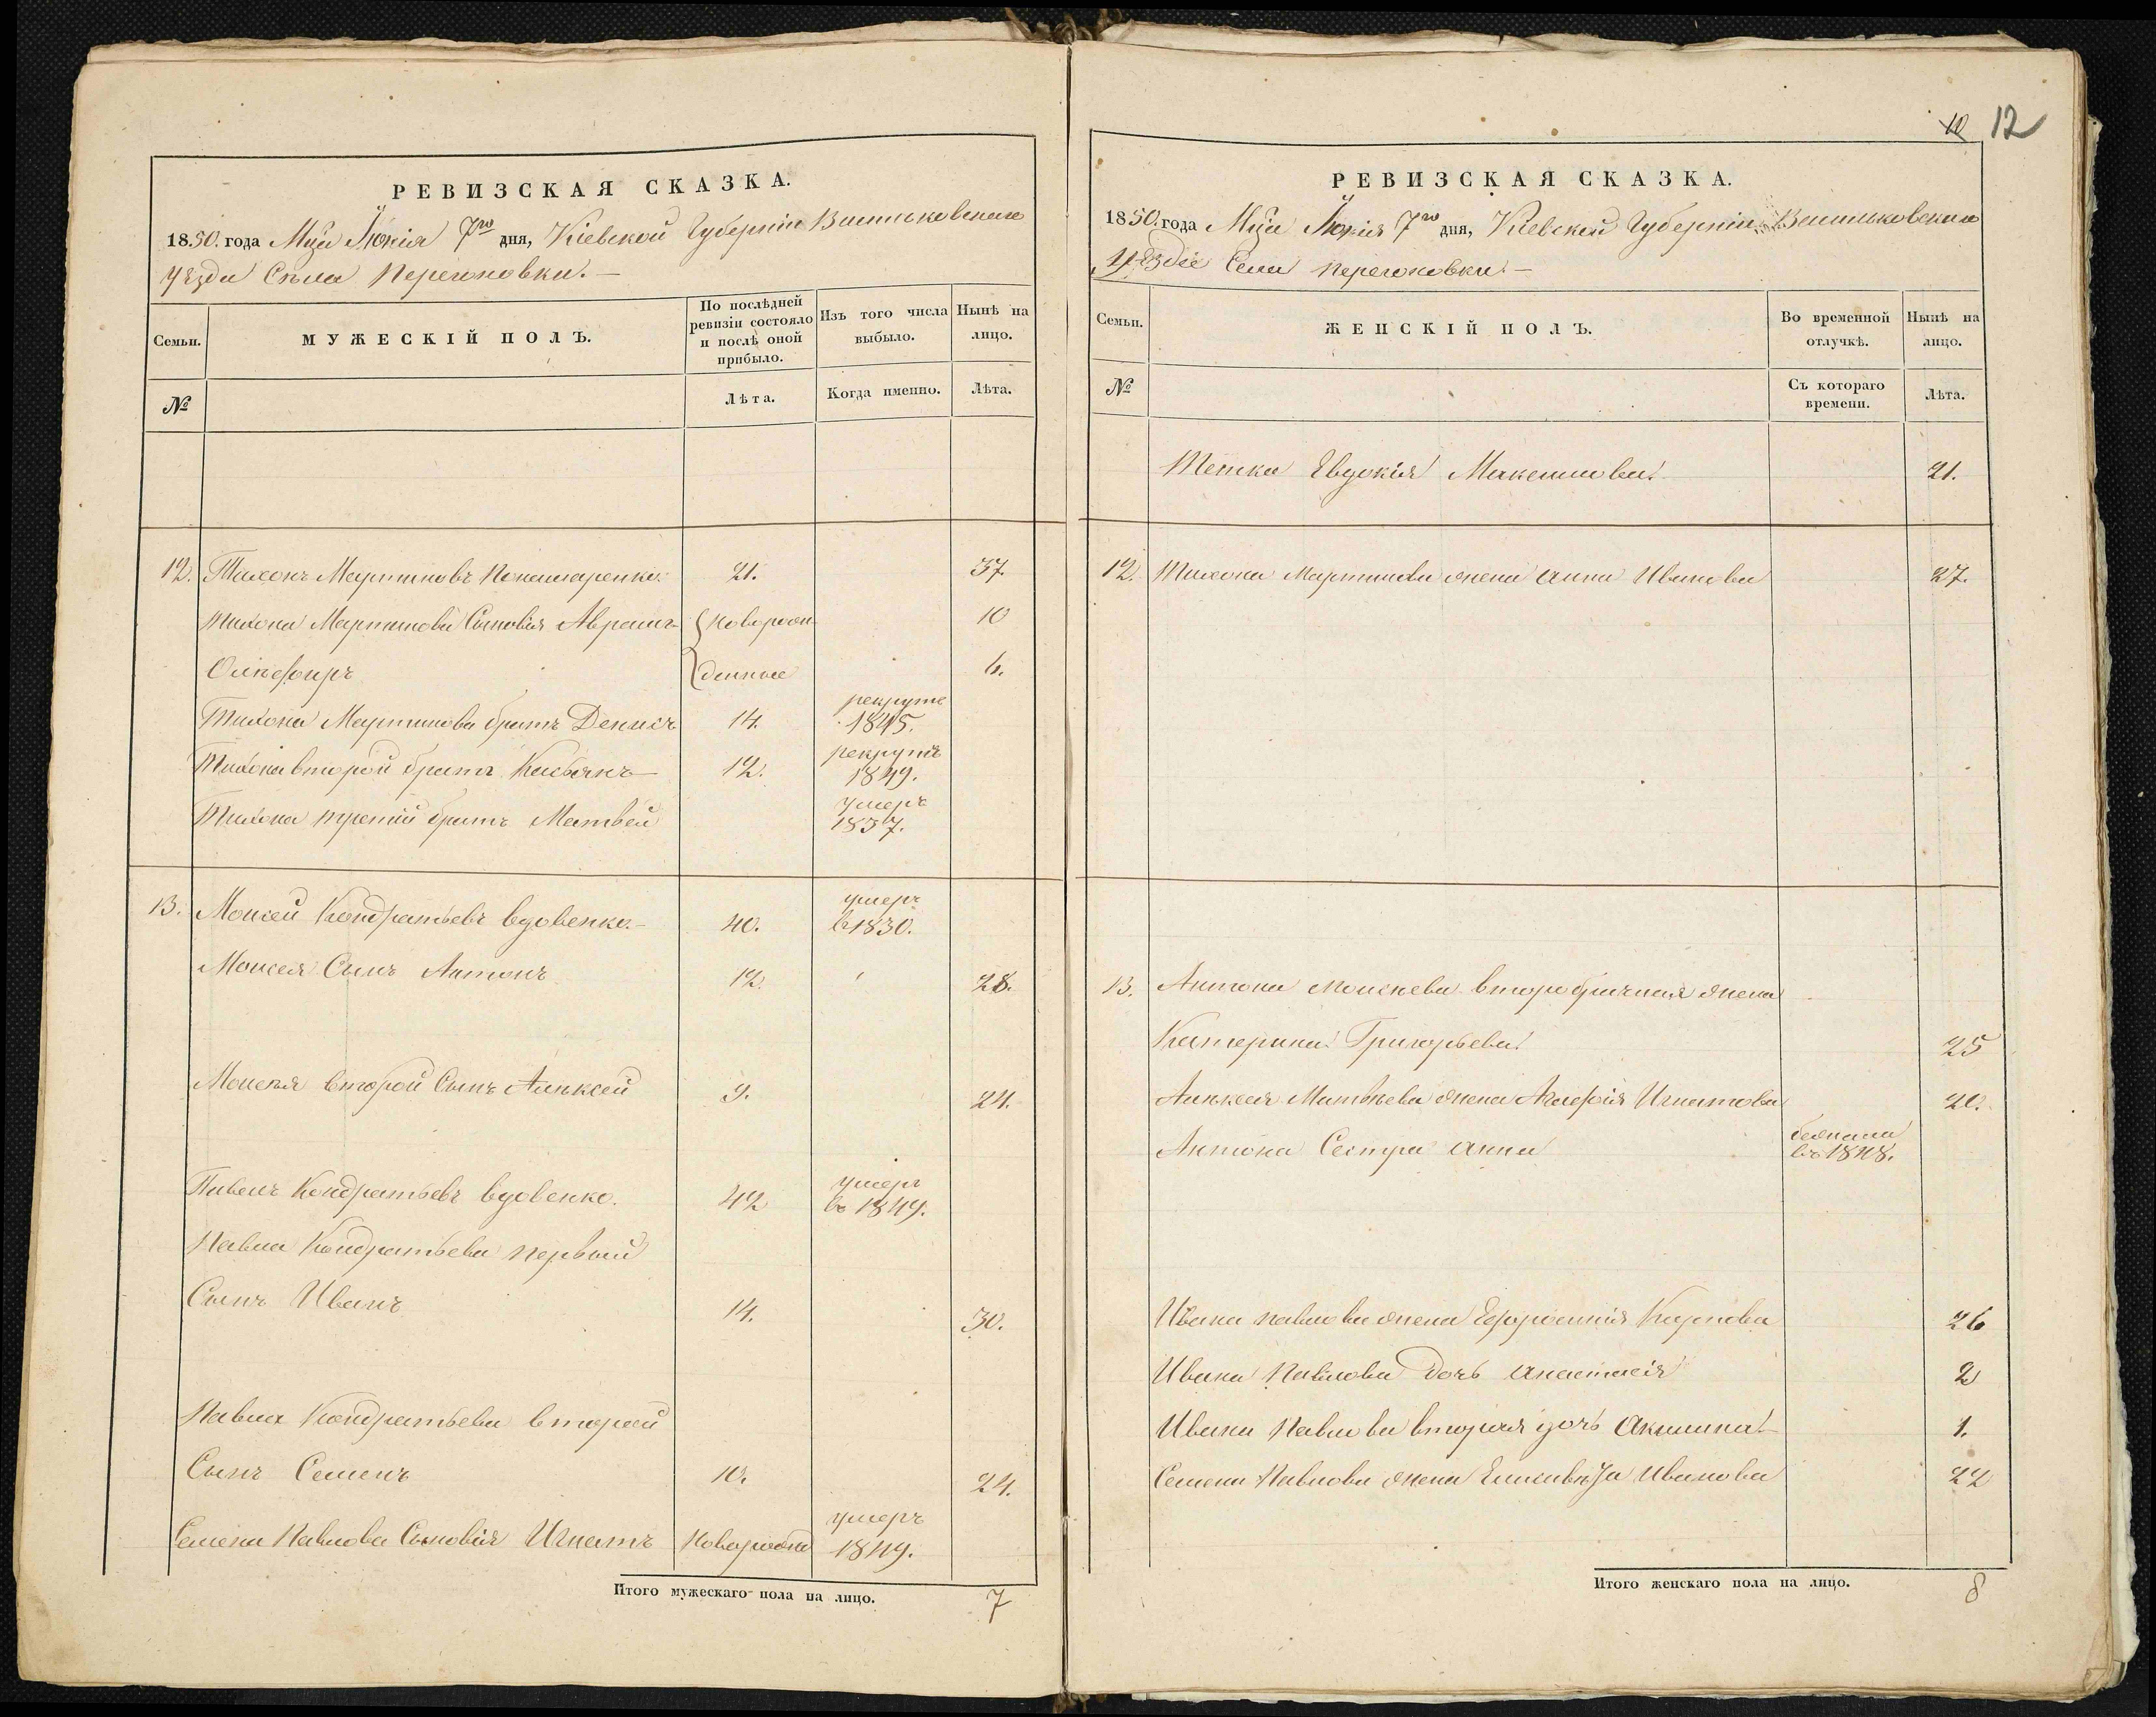 РЕВИЗСКАЯ СКАЗКА.
1850. года Мца Іюнія 7го дня, Кіевской Губерніи Васильковскаго
уѣзда Сѣла Перегоновки. —
Семьи.
МУЖЕСКІЙ ПОЛЪ.
По послѣдней ревизіи состояло и послѣ оной прибыло.
Изъ того числа выбыло.
Нынѣ на лицо.
№
Лѣта.
Когда именно.
Лѣта.
12. Тихонъ Мартиновъ Пономаренко 21. 37.
Тихона Мартинова Сыновія Аврамъ {новорож- 10
Олѣфиръ {денные 6.
Тихона Мартинова братъ Денисъ 14. рекрутъ 1845.
Тихона второй братъ Касьянъ 12. рекрутъ 1849.
Тихона третій братъ Матвей умеръ 1837.
13. Моисей Кондратьевъ вдовенко. — 40. умеръ в 1830.
Моисея Сынъ Антонъ 12. 28.
Моисея второй Сынъ Алѣксей 9. 24.
Павелъ Кондратьевъ вдовенко. 42 умеръ въ 1849.
Павла Кондратьева первый
Сынъ Иванъ 14. 30.
Павла Кондратьева второй
Сынъ Семенъ 10. 24.
Семена Павлова Сыновія Игнатъ Новорожд умеръ 1849.
Итого мужескаго пола на лицо. 7
10 12
РЕВИЗСКАЯ СКАЗКА.
1850. года Мца Іюнія 7го дня, Кіевской Губерніи Васильковскаго
Села Перегоновки. —
Семьи.
ЖЕНСКІЙ ПОЛЪ.
Во временной отлучкѣ.
Нынѣ на лицо.
№
Съ котораго времени.
Лѣта.
Тетка Евдокія Максимова 21.
12. Тихона Мартинова жена Анна Иванова 27.
13. Антона Моисѣева второбрачная жена
Катерина Григорьева 25
Алѣксея жена Игнатова 20.
Антона Сестра Анна бежала въ 1848.
Ивана Павлова жена Ефросинія Карпова 26
Ивана Павлова дочь Анастасія 2
Ивана Павлова вторая дочь Акилина 1.
Семена Павлова жена Елисавѣта Иванова 22
Итого женскаго пола на лицо. 8